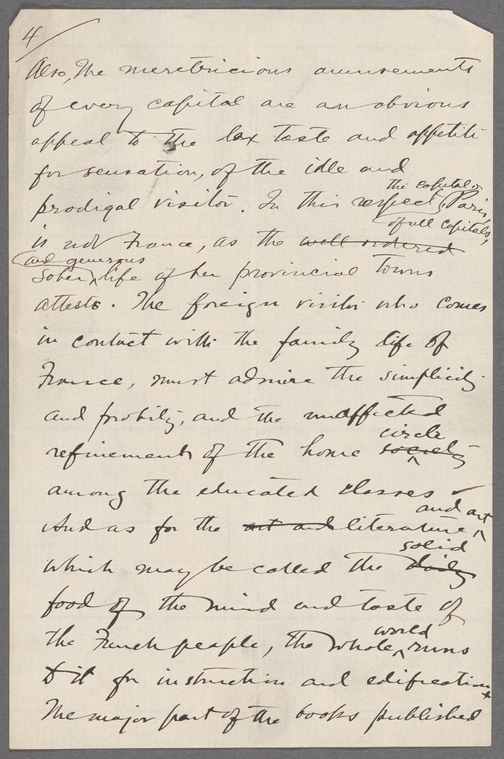 4
Also, The meretricious amusements
of every capital are an obvious
appeal to the lax taste and appetite
for sensation, of the idle and
prodigal visitor. In this respect, Paris,
the capital of
of all capitals,
is not France, as the well ordered
and generous
sober life of her provincial towns
attests. The foreign visitor who comes
in contact with the family life of
France, must admire the simplicity
and probity, and the unaffected
refinement of the home society
circle
among the educated classes
And as for the art and literature,
and art
which may be called the daily
solid
food of the mind and taste of
the French people, the whole runs
world
to it for instruction and edification
The major part of the books published